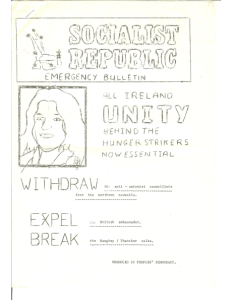 SOCIALIST
REPUBLIC
EMERGENCY BULLETIN
ALL IRELAND
UNITY
BEHIND THE
HUNGER STRIKERS
NOW ESSENTIAL
WITHDRAW all anti - unionist councillors
from the northern councils.
EXPEL the British ambassador.
BREAK the Haughey / Thatcher talks.
PRODUCED BY PEOPLES' DEMOCRACY.